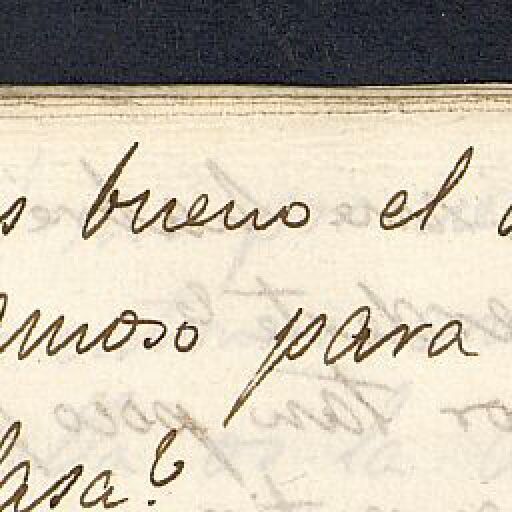 s bueno el
amoso para
asa?